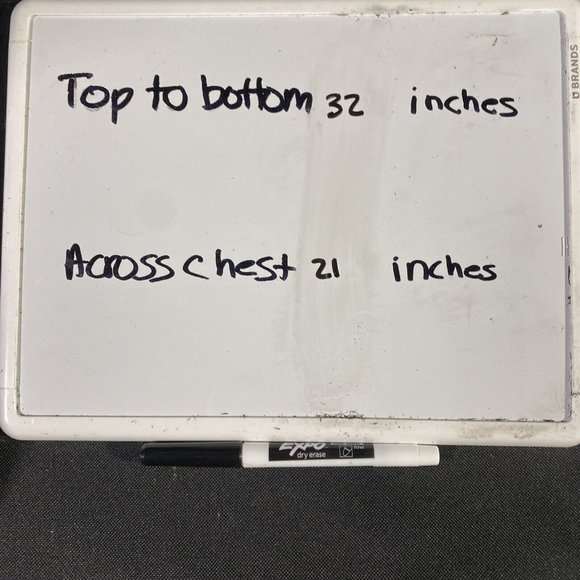 Top to bottom 32 inches
Across chest 21 inches
U BRANDS
EXPO
dry erase